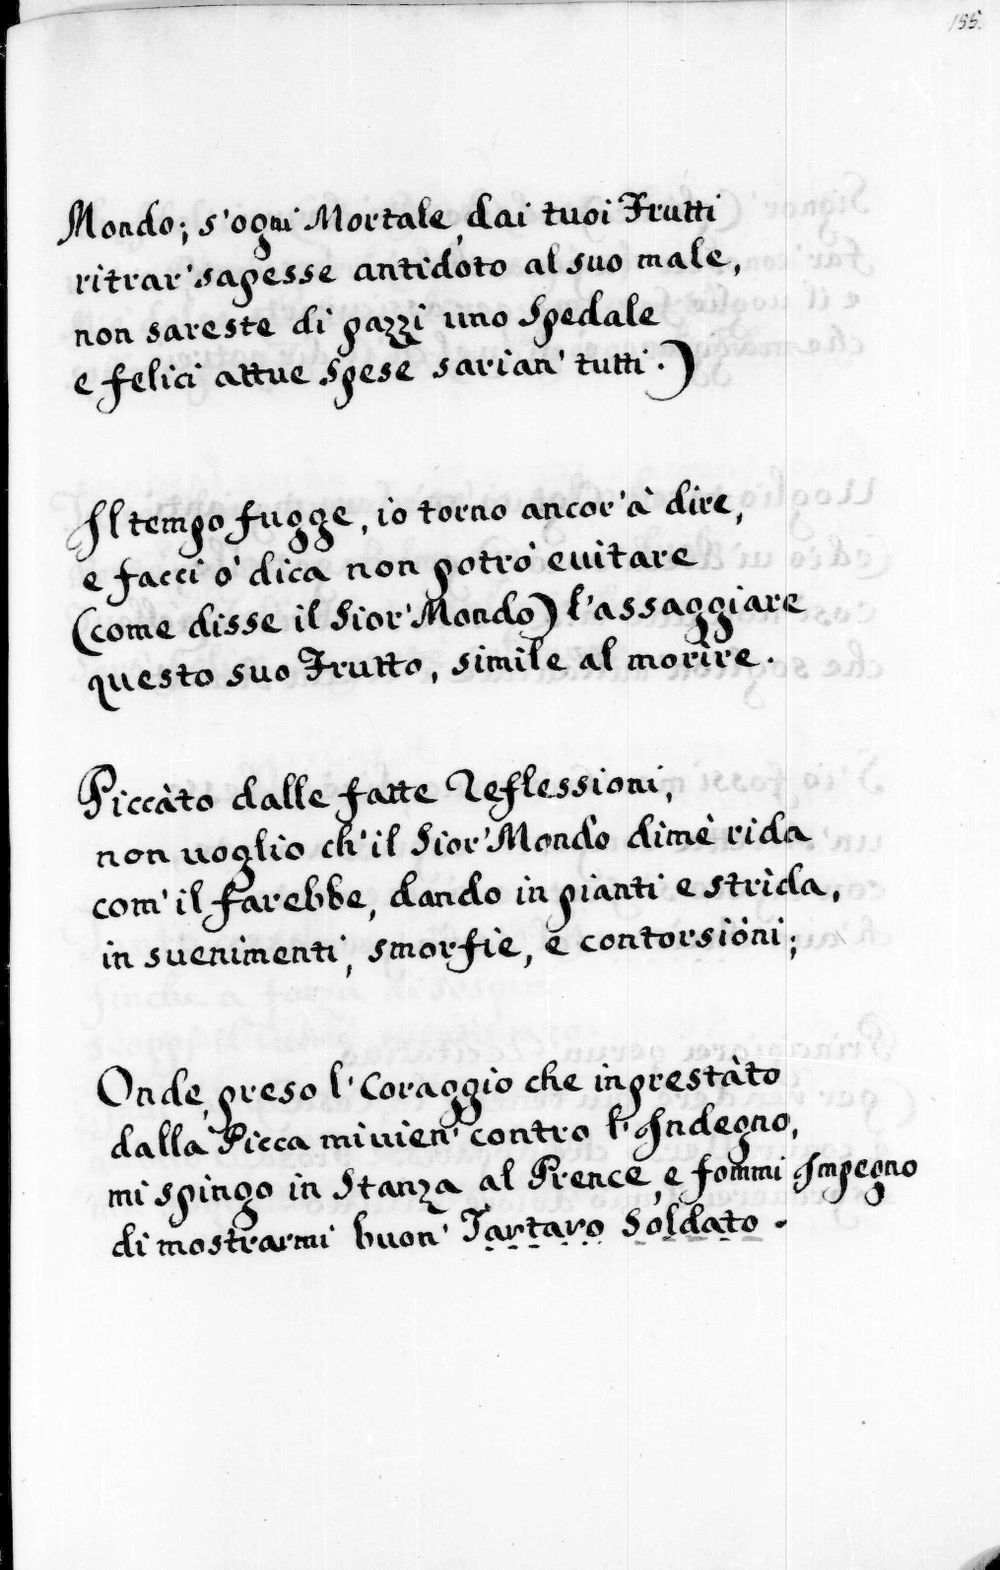 155.
Mondo; s'ogni Mortale, dai tuoi Frutti
ritrar' sapesse antidoto al suo male,
non sareste di pazzi uno Spedale
e felici attue spese sarian' tutti.)
Il tempo fugge, io torno ancor'à dire,
e facci ò dica non potrò euitare
(come disse il Sior' Mondo) l'assaggiare
questo suo Frutto, simile al morìre.
Piccàto dalle fatte Reflessioni,
non uoglio ch'il Sior' Mondo dimè rida
com' il farebbe, dando in pianti e strìda,
in suenimenti, smorfie, e contorsióni;
Onde, preso l' Coraggio che inprestàto
dalla Picca mi uien' contro l' Indegno,
mi spingo in Stanza al Prence, e fommi Impegno
di mostrarmi buon' Tartaro Soldato.